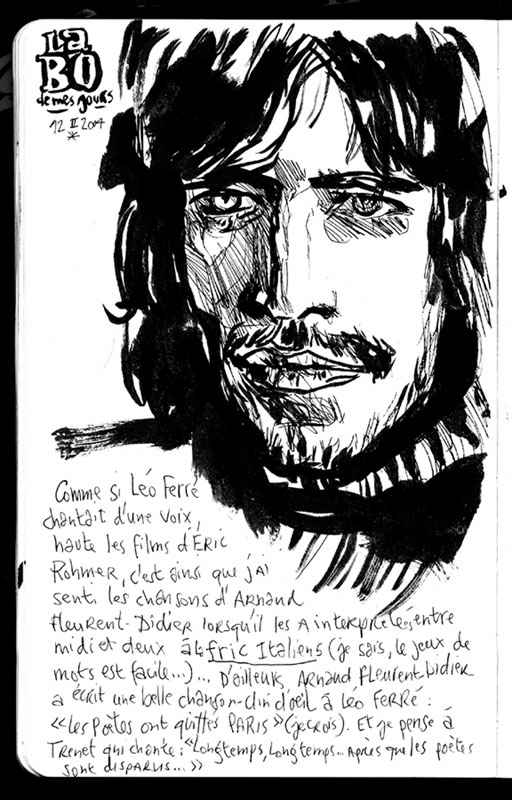 La
BO
de mes jours
12 II 2004
Comme si Léo Ferré
chantait d'une voix
haute les films d'Éric
Rohmer, c'est ainsi que j'ai
senti les chansons d'Arnaud
Fleurent-Didier lorsqu'il les a interprétées, entre
midi et deux à bfric Italiens (je sais, le jeux de
mots est facile...)... D'ailleurs, Arnaud Fleurent Didier
a écrit une belle chanson-clin d'oeil à Léo Ferré :
«Les Poètes ont quittés PARIS» (je crois). Et je pense à
Trenet qui chante : «Longtemps, Longtemps... Après que les poètes
sont disparus...»